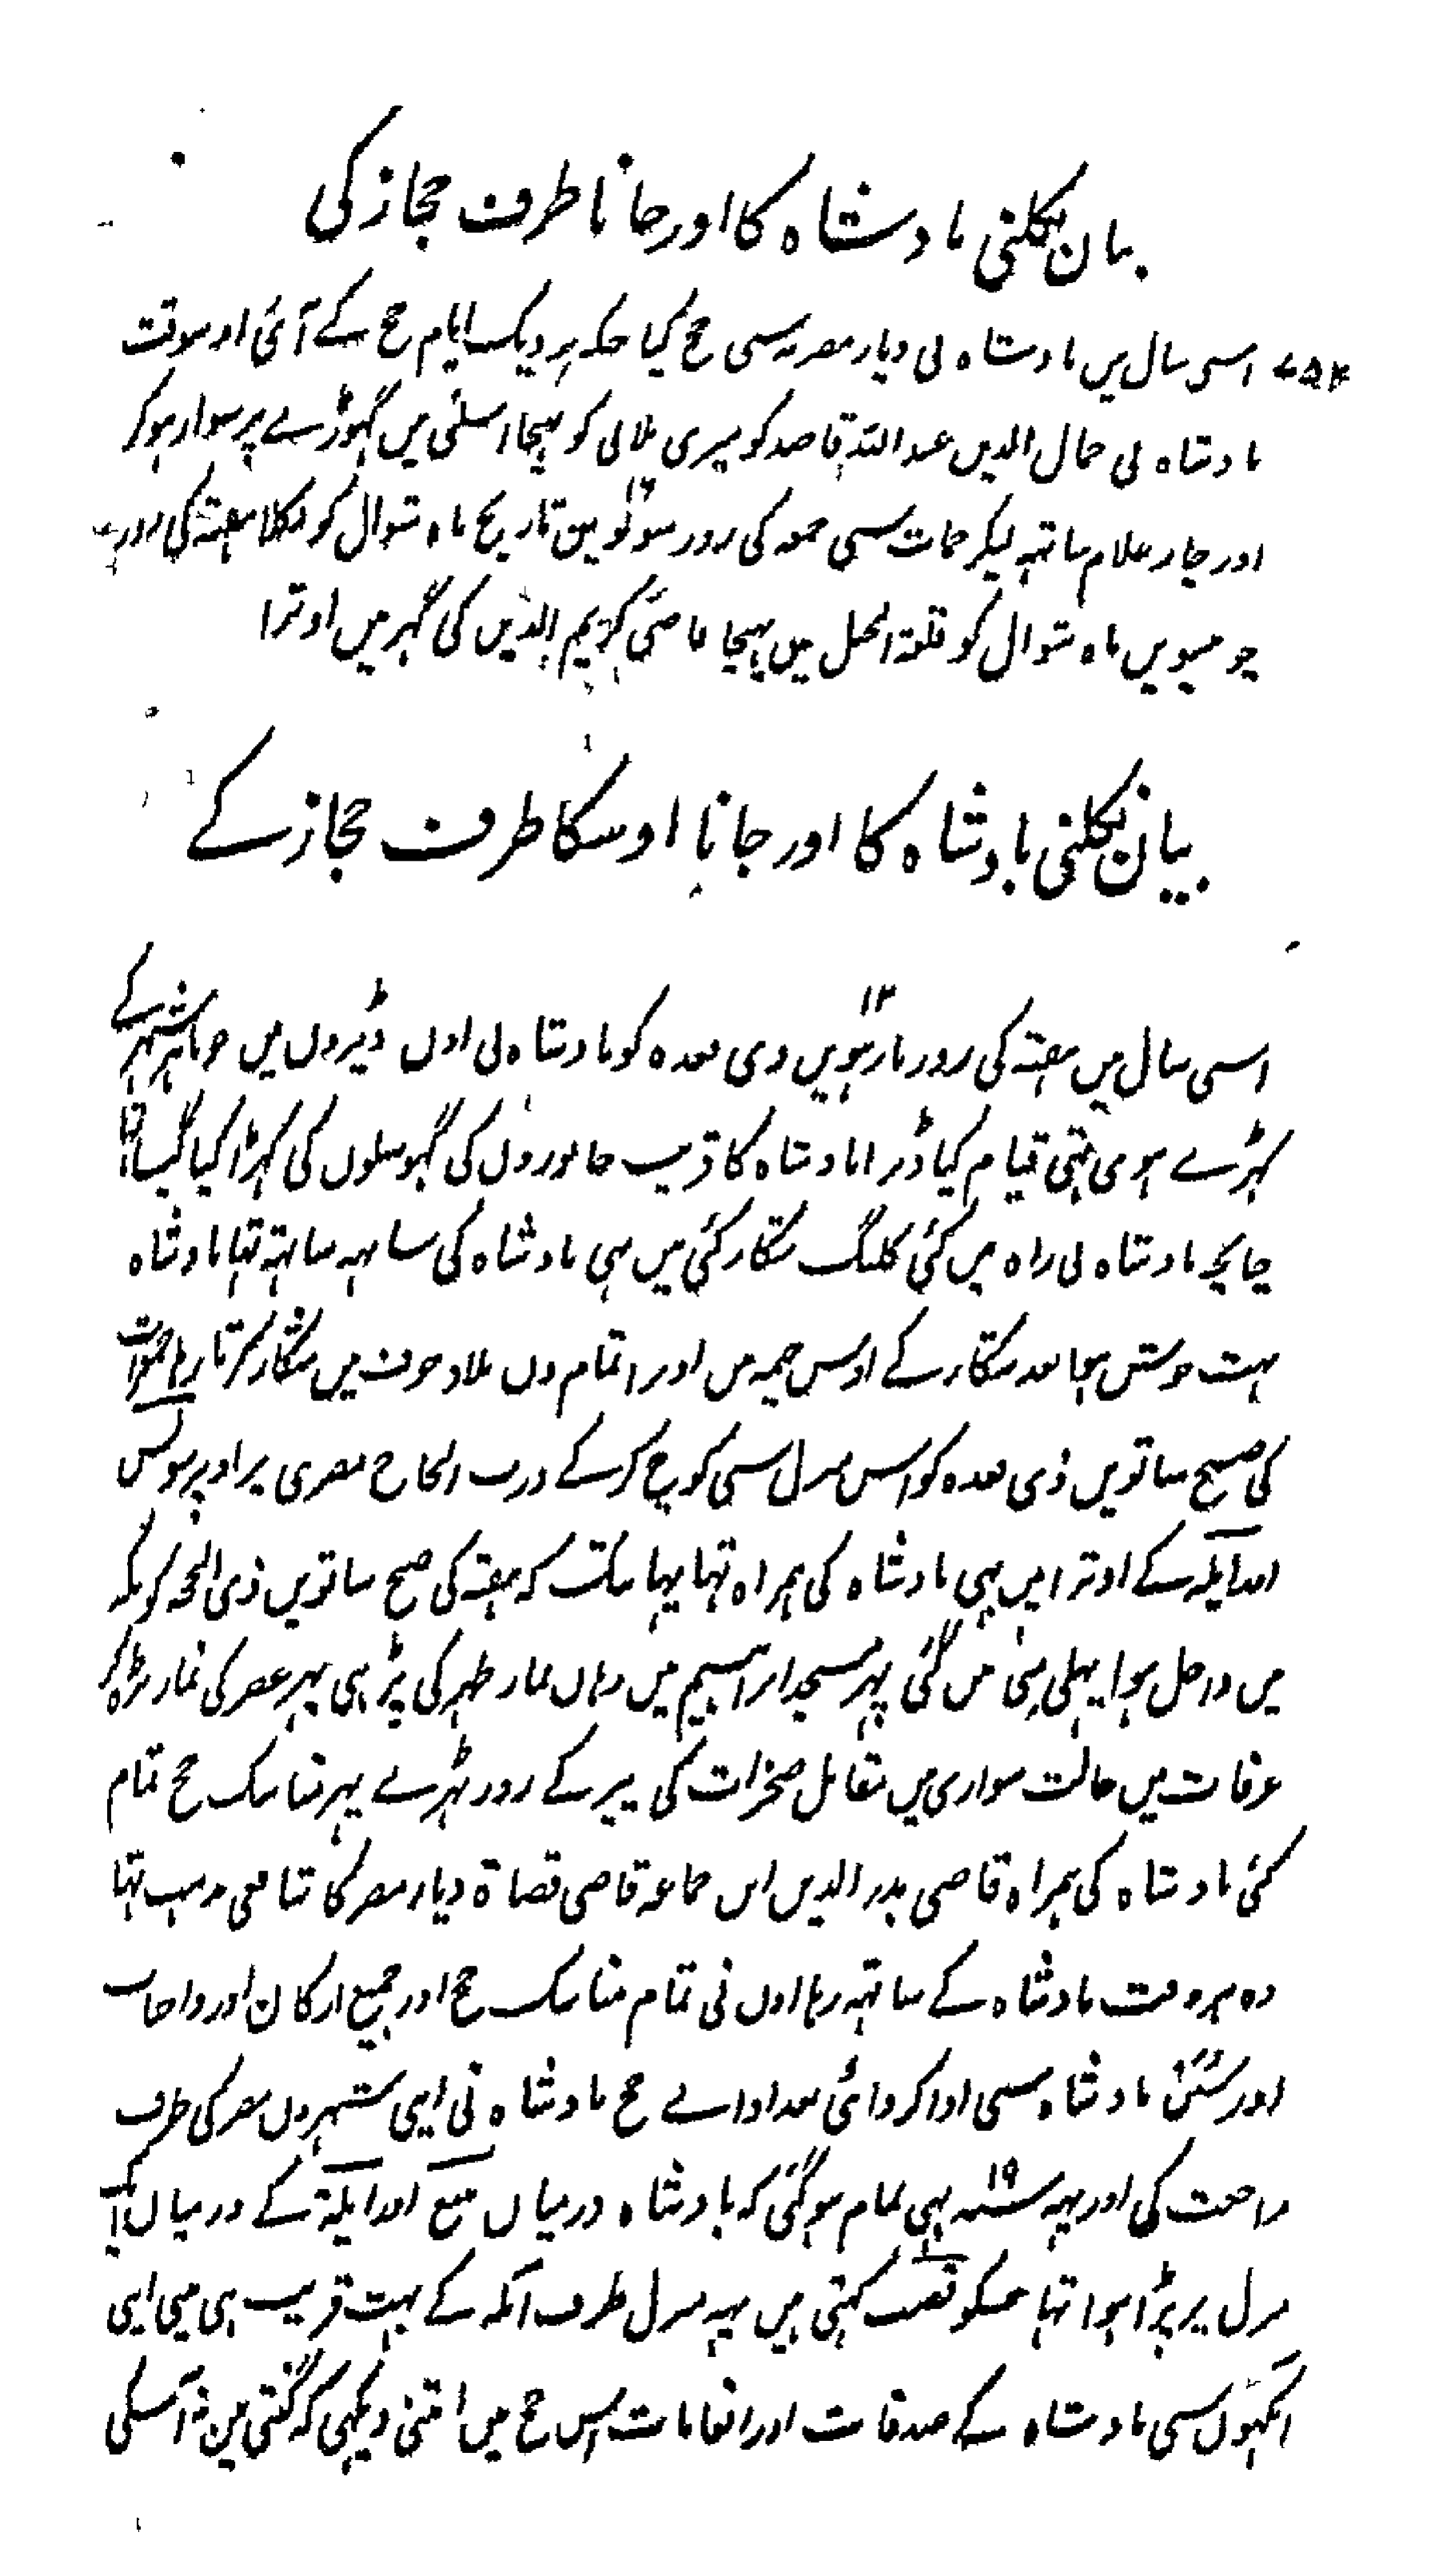 بیان نکلنی بادشاہ کا اور جانا طرف حجاز کی
اسی سال میں بادشاہ نی دیار مصریہ سی حج کیا جبکہ نزدیک ایام حج کے آئی اوسوقت
بادشاہ نی جمال الدین عبداللہ قاصد کو میری بلانی کو بہیجا اسلئی میں گہوڑے پر سوار ہوکر
اور چار غلام ساتہہ لیکر حمات سی جمعہ کی روز سولہوین ۱۶ تاریخ ماہ شوال کو نکلا ہفتہ کی روز
چوبیسویں ماہ شوال کو قلعۃ الجبل میں پہنچا قاضی کریم الدین کی گہر میں اوترا
بیان نکلنی بادشاہ کا اور جانا اوسکا طرف حجاز کے
اسی سال میں ہفتہ کی روز بارہویں ۱۲ ذی قعدہ کو بادشاہ نی اون ڈیروں میں جو باہر شہر کے
کہڑے ہوی تہی قیام کیا ڈیرا بادشاہ کا قریب جانوروں کی گہوسلوں کی کہڑا کیا گیا تہا
چنانچہ بادشاہ نی راہ میں کئی کلنگ شکار کئی میں بہی بادشاہ کی ساتہہ ساتہہ تہا بادشاہ
بہت خوش ہوا بعد شکار کے اوس خیمہ میں اوترا تمام دن بلاد حوف میں شکار کرتا رہا جمعرات
کی صبح ساتویں ذی قعدہ کو اس منزل سی کوچ کرکے درب الحاج مصری پر اوپر سویس
اور ایلہ کے اوترا میں بہی بادشاہ کی ہمراہ تہا یہانتک کہ ہفتہ کی صبح ساتویں ذی الحجہ کو مکہ
میں داخل ہوا پہلی منی میں گئی پہر مسجد ابراہیم میں وہاں نماز ظہر کی پڑہی پہر عصر کی نماز پڑہ کر
عرفات میں حالت سواری میں مقابل صخرات کی پیر کے روز ٹہرے پہر مناسک حج تمام
کئی بادشاہ کی ہمراہ قاضی بدر الدین ابن جماعہ قاضی قضاۃ دیار مصر کا شافعی مذہب تہا
وہ ہروقت بادشاہ کے ساتہہ رہا اون نی تمام مناسک حج اور جمیع ارکان اور واجبات
اور سنن بادشاہ سی ادا کروائی بعد اداے حج بادشاہ نی اپنی شہروں مصر کی طرف
مراجعت کی اور یہہ سنہ ۱۹ بہی تمام ہوگئی کہ بادشاہ درمیان ینبع اور ایلۃ کے درمیان ایک
منزل پر پڑا ہوا تہا جسکو قصب کہتی ہیں یہہ منزل طرف ایلہ کے بہت قریب ہی میی اپنی
آنکہوں سی بادشاہ کے صدقات اور انعامات اس حج میں اتنی دیکہی کہ گنتی میں نہ آسکی